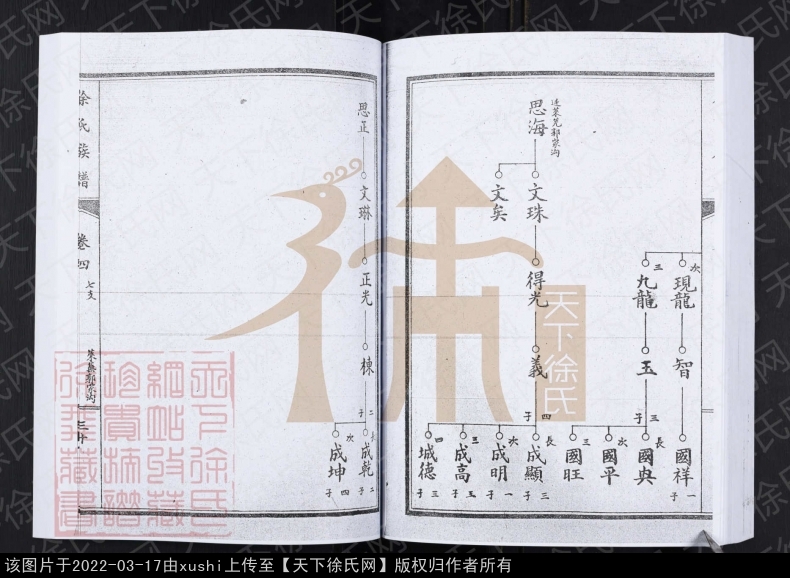 思海
遷萊蕪鄒家溝
文珠
文矣
得光
義
四子
長
成顯
三子
次
成明
一子
三
成高
五子
四
城德
三子
次
現龍
智
國祥
一子
三
九龍
玉
三子
長
國典
次
國平
三
國旺
思正
文琳
正光
棟
二子
長
成乾
二子
次
成坤
四子
徐氏族譜
卷四
七支
萊蕪鄒家溝
天下徐氏
天下徐氏网
该图片于2022-03-17由xushi上传至【天下徐氏网】版权归作者所有